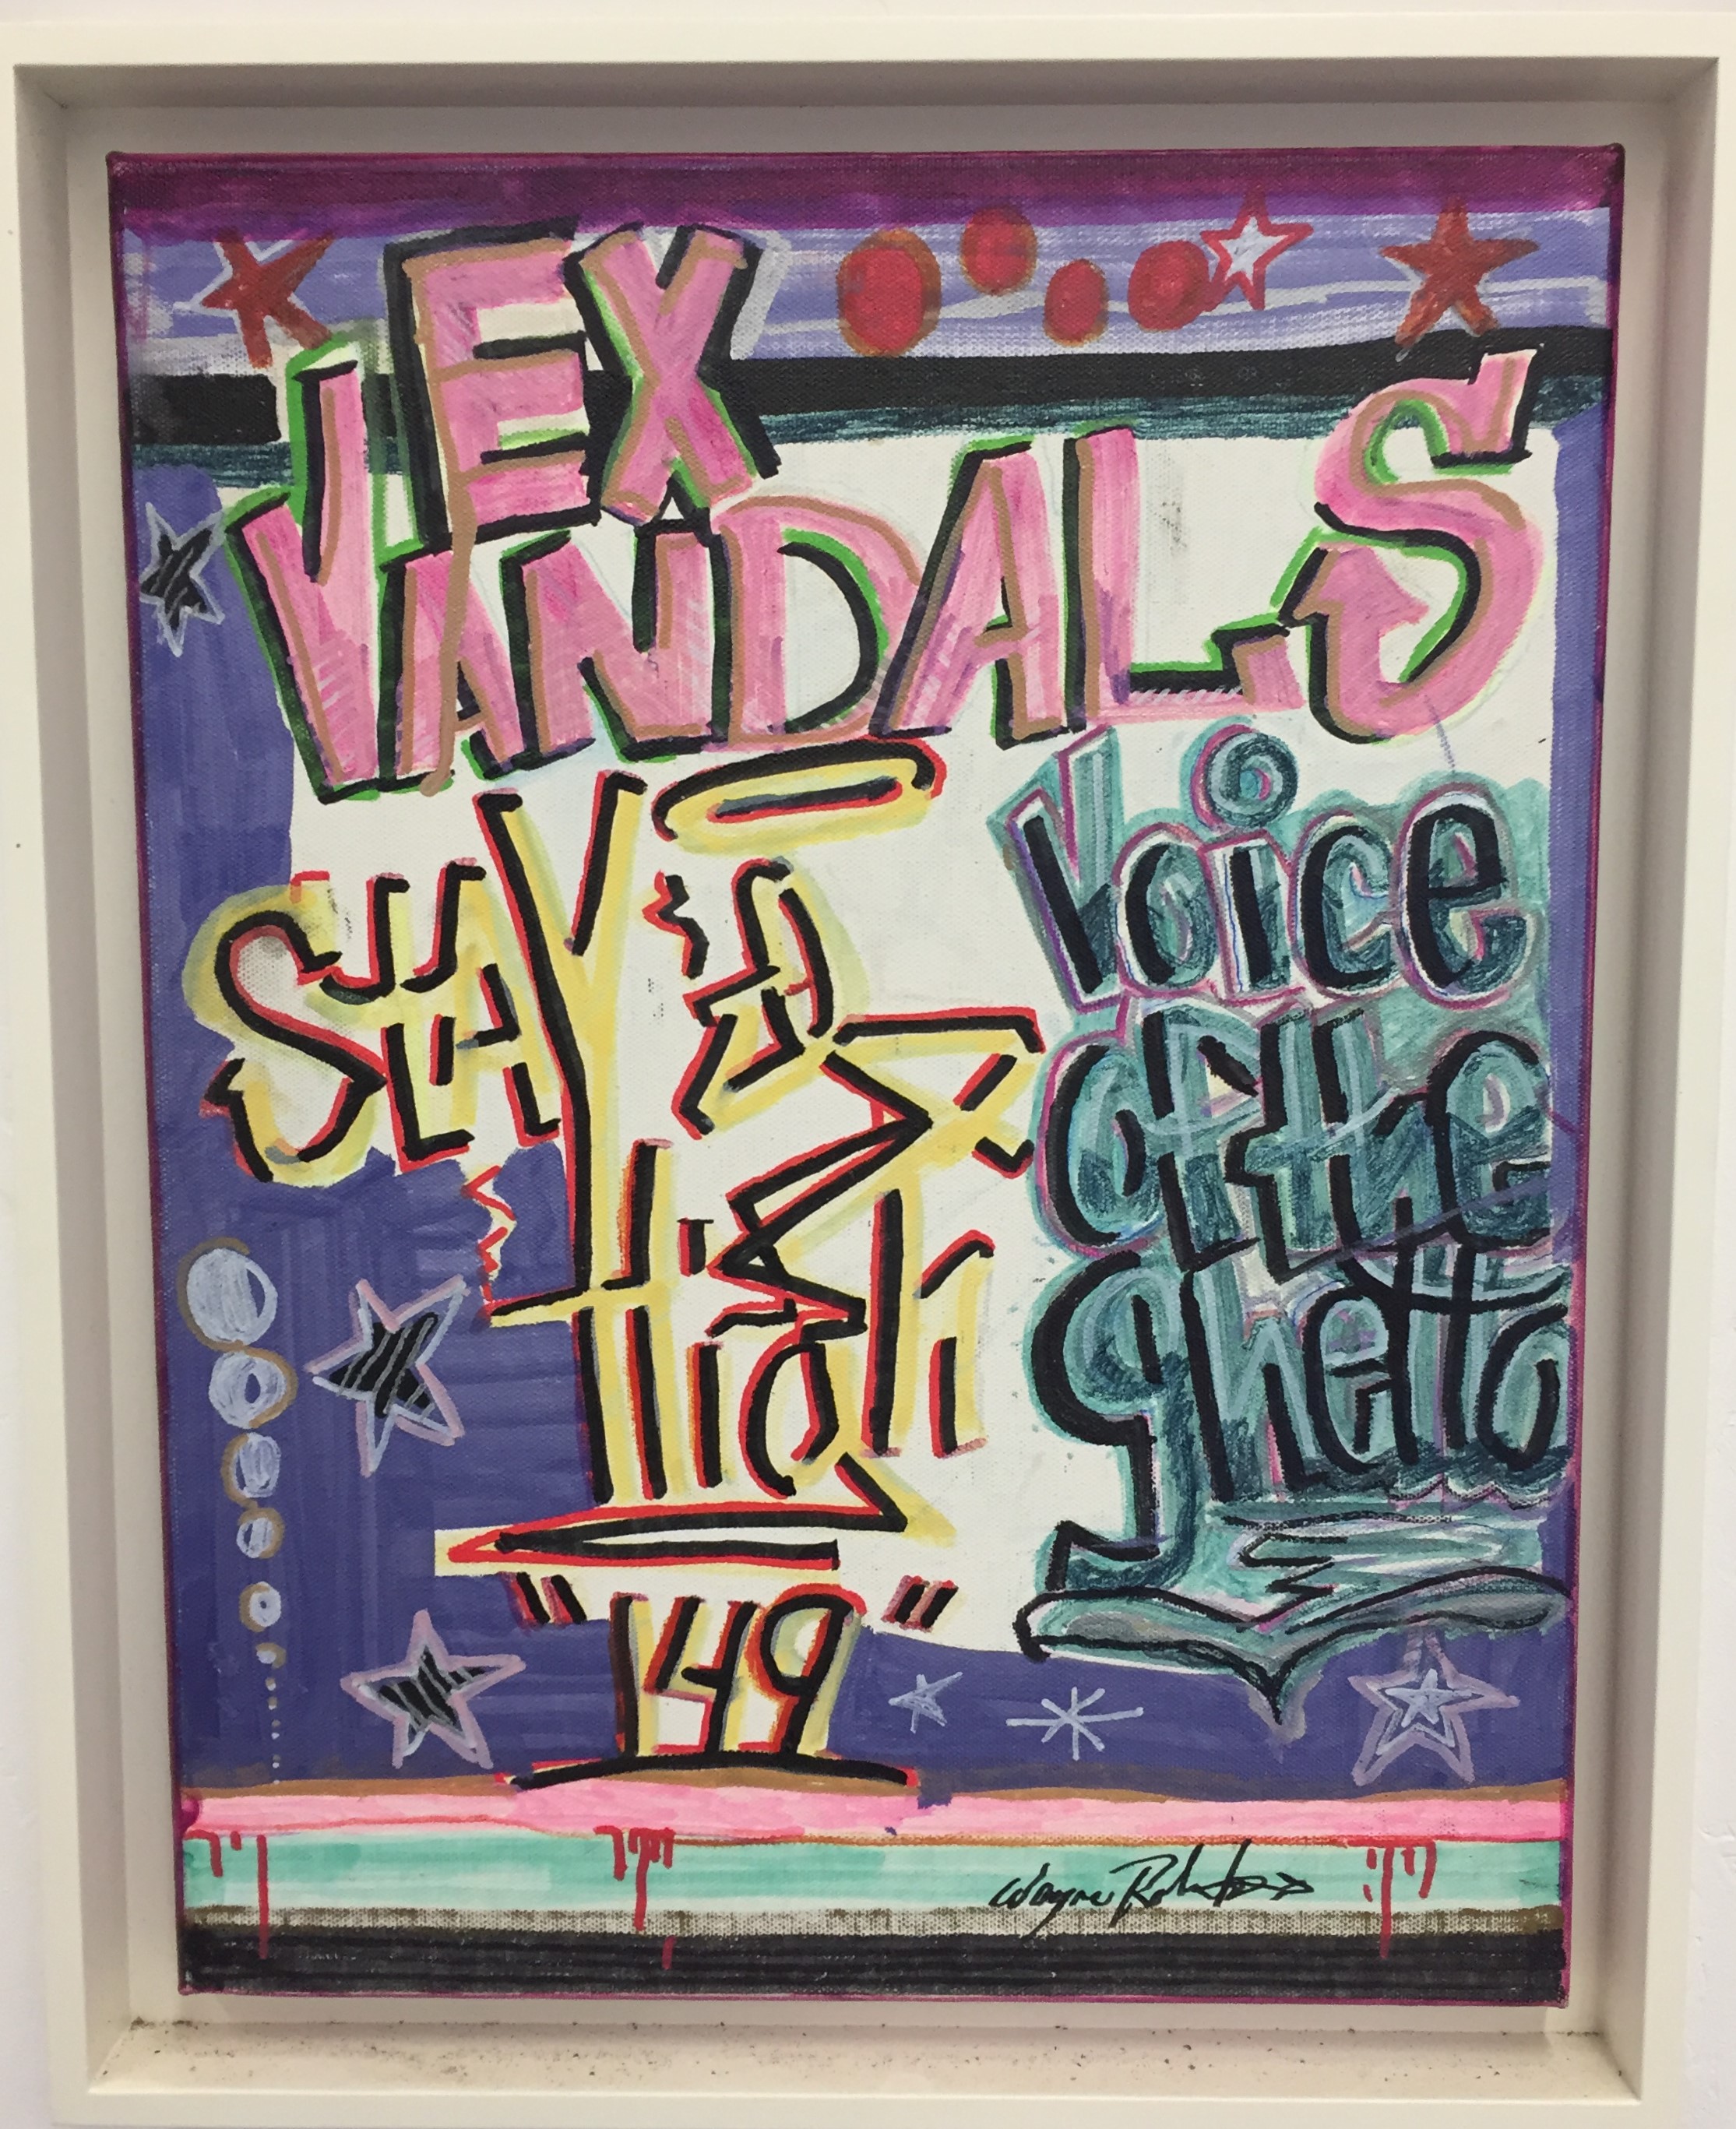 EX
VANDALS
STAY
High
"149"
Voice
of the
ghetto
Wayne Roberts